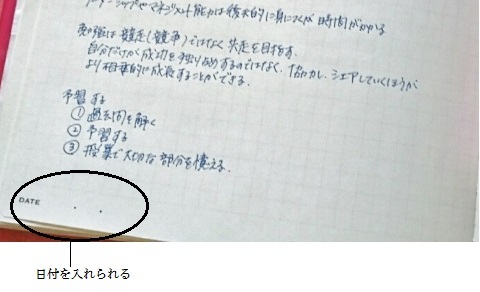 リーダーシップやマネジメント能力は後天的に身につくが時間がかかる
勉強は競走(競争)ではなく共走を目指す。
自分だけが成功を独り占めするのではなく、協力し、シェアしていくほうが
より相乗的に成長することができる。
予習する
① 過去問を解く
② 予習する
③ 授業で大切な部分を憶える。
DATE . .
日付を入れられる